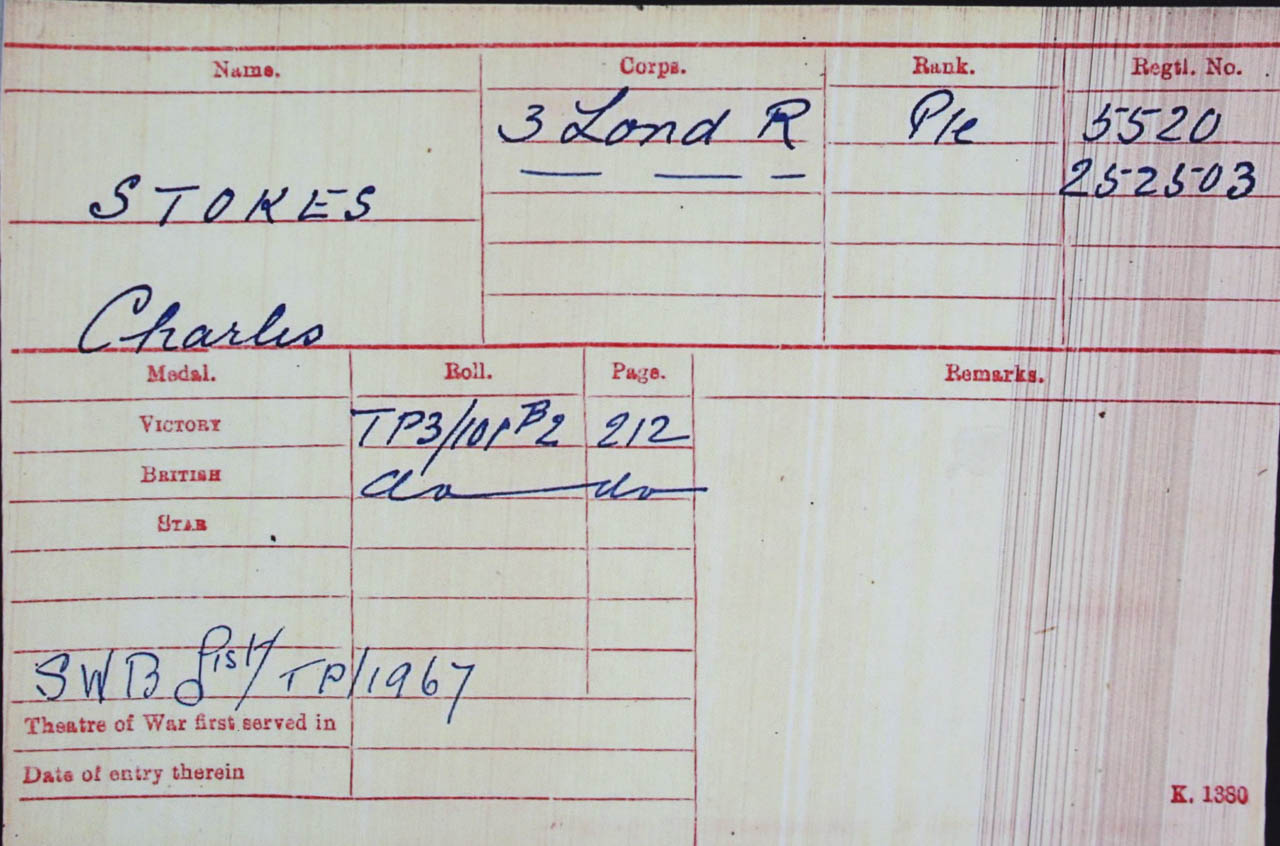 Name. Corps. Rank. Regtl. No.
3 Lond R Pte 5520
— — — 252503
STOKES
Charles
Medal. Roll. Page. Remarks.
VICTORY TP3/101 B2 212
BRITISH do do
STAR
SWB List/TP/1967
Theatre of War first served in
Date of entry therein
K. 1380